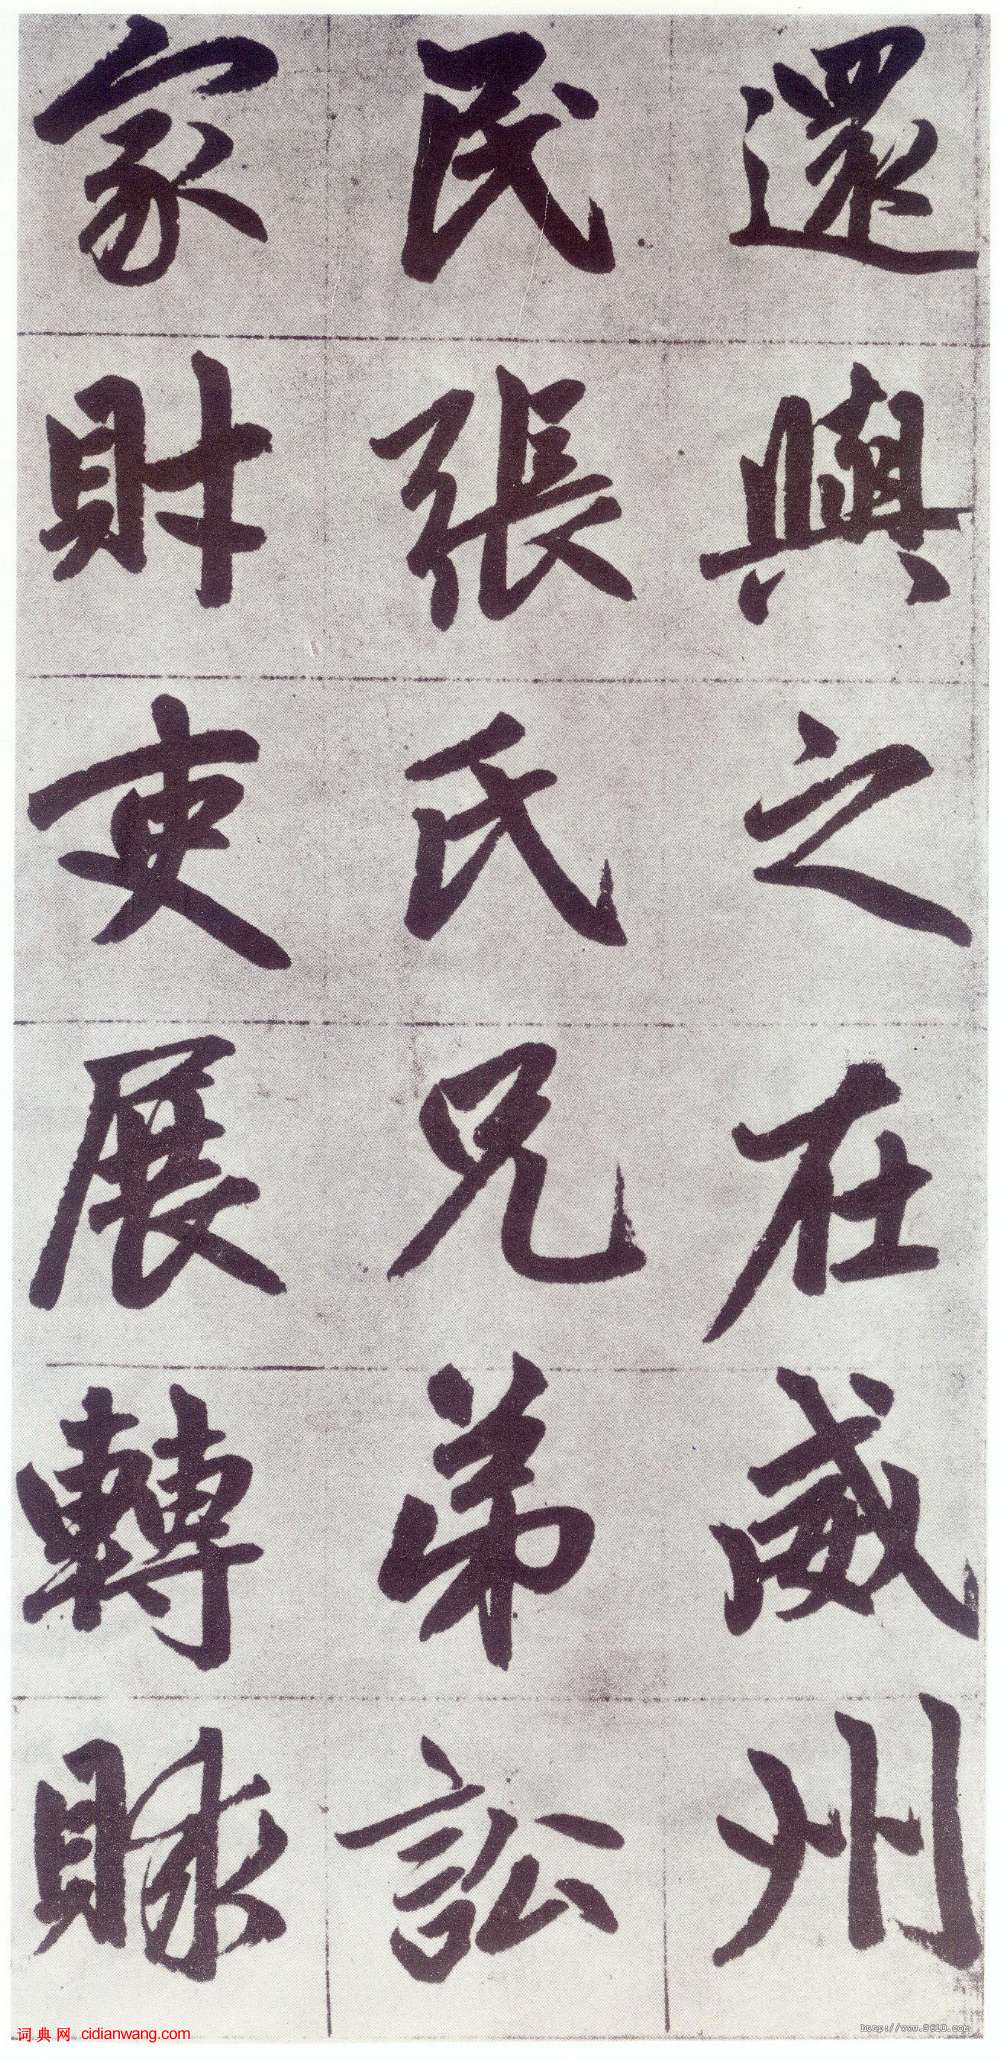 還與之在威州
民張氏兄弟訟
家財吏展轉賕
词典网 cidianwang.com